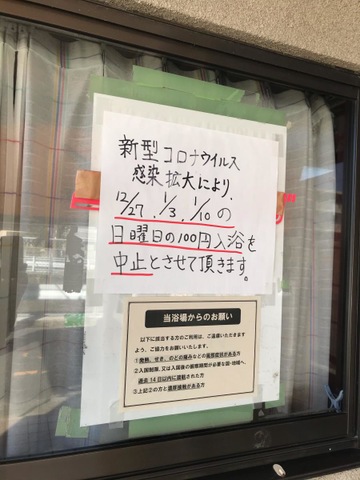 新型コロナウイルス
感染拡大により、
12/27、1/3、1/10の
日曜日の100円入浴を
中止とさせて頂きます。
当浴場からのお願い
以下に該当する方のご利用は、ご遠慮いただきます
よう、ご協力をお願いいたします。
①発熱、せき、のどの痛みなどの風邪症状がある方
②入国制限、又は入国後の観察期間が必要な国・地域へ、
過去14日以内に渡航された方
③上記②の方と濃厚接触がある方